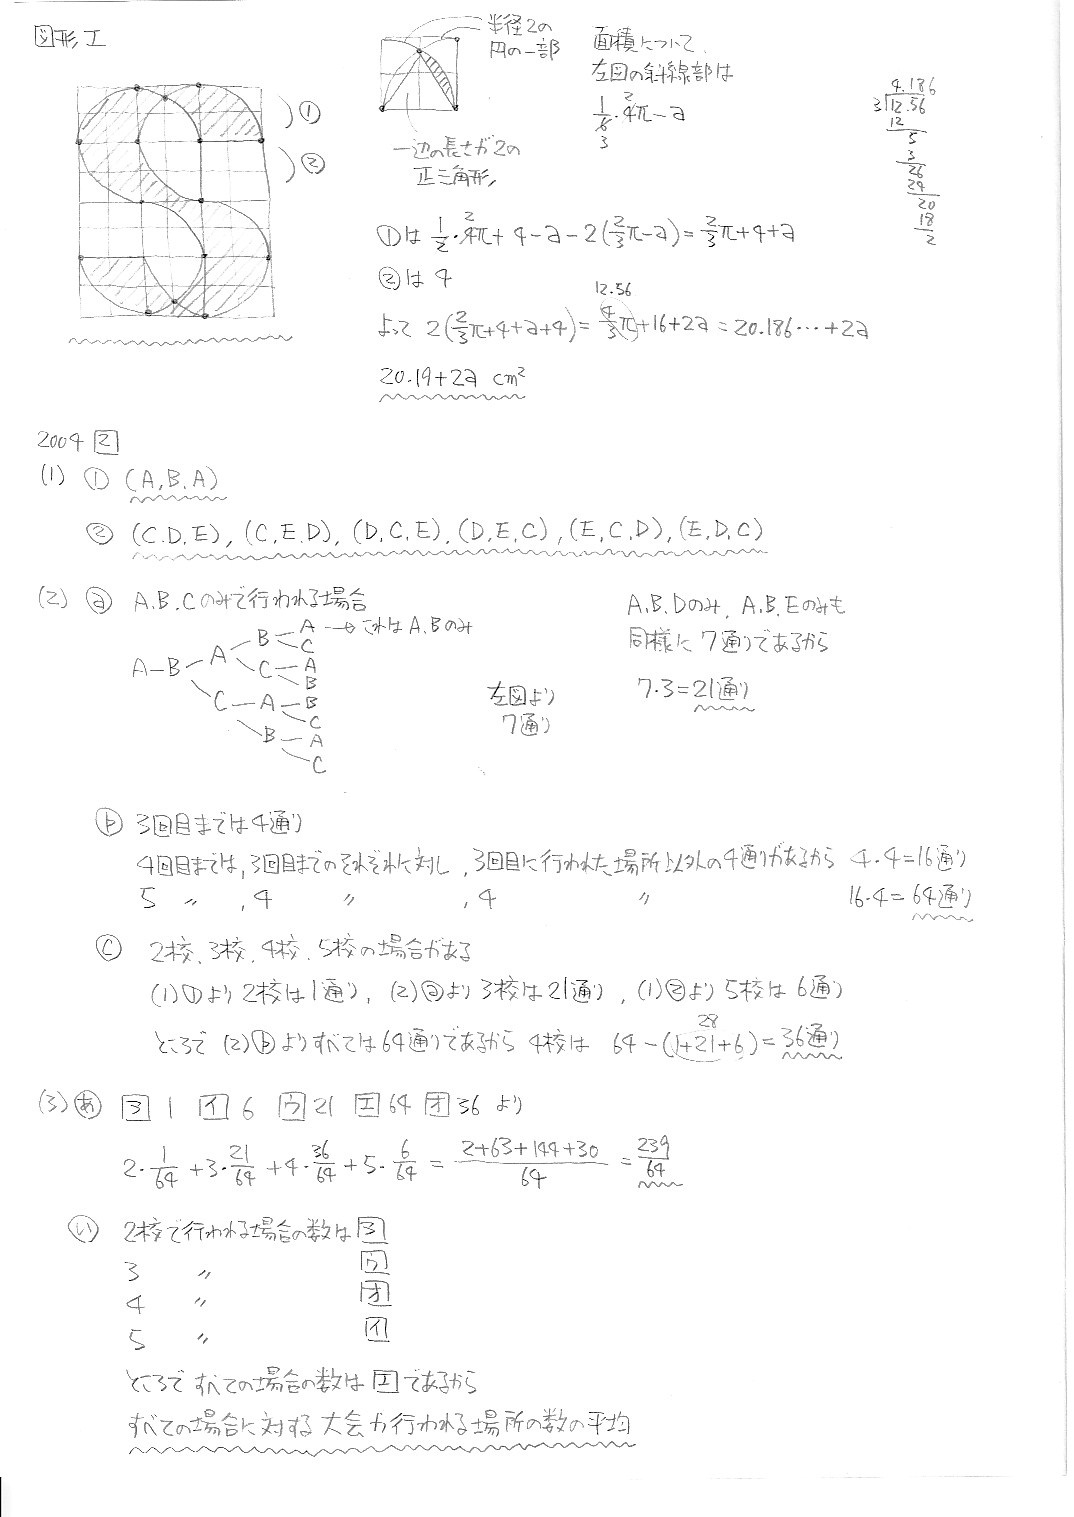 図形工
半径2の
円の一部
一辺の長さが2の
正三角形
面積について、
左図の斜線部は
1/6・4π-a
2
3
4.186
3)12.56
12
5
3
26
24
20
18
2
①
②
①は 1/2・4π+4-a-2(2/3π-a)=2/3π+4+a
2
②は 4
12.56
よって 2(2/3π+4+a+4)=4/3π+16+2a=20.186…+2a
20.19+2a cm²
2004 2
(1) ① (A,B,A)
② (C,D,E), (C,E,D), (D,C,E), (D,E,C), (E,C,D), (E,D,C)
(2) ⓐ A,B,Cのみで行われる場合
A → これはA,Bのみ
B C
A-B A C A
B
C A B
C
B A
C
左図より
7通り
A,B,Dのみ, A,B,Eのみも
同様に 7通りであるから
7・3=21通り
ⓑ 3回目までは4通り
4回目までは,3回目までのそれぞれに対し,3回目に行われた場所以外の4通りがあるから 4・4=16通り
5 〃 ,4 〃 ,4 〃 16・4=64通り
ⓒ 2校、3校、4校、5校の場合がある
(1)①より 2校は1通り, (2)ⓐより 3校は21通り, (1)②より 5校は 6通り
28
ところで (2)ⓑよりすべては64通りであるから 4校は 64-(1+21+6)=36通り
(3) あ ヨ 1 イ 6 ウ 21 エ 64 オ 36 より
2・1/64+3・21/64+4・36/64+5・6/64=2+63+144+30/64=239/64
い 2校で行われる場合の数は ヨ
3 〃 ウ
4 〃 オ
5 〃 イ
ところで すべての場合の数は エ であるから
すべての場合に対する 大会が行われる場所の数の平均